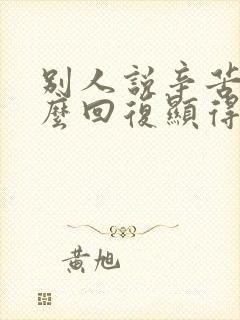 別人說辛苦
麼回復顯得
黃旭